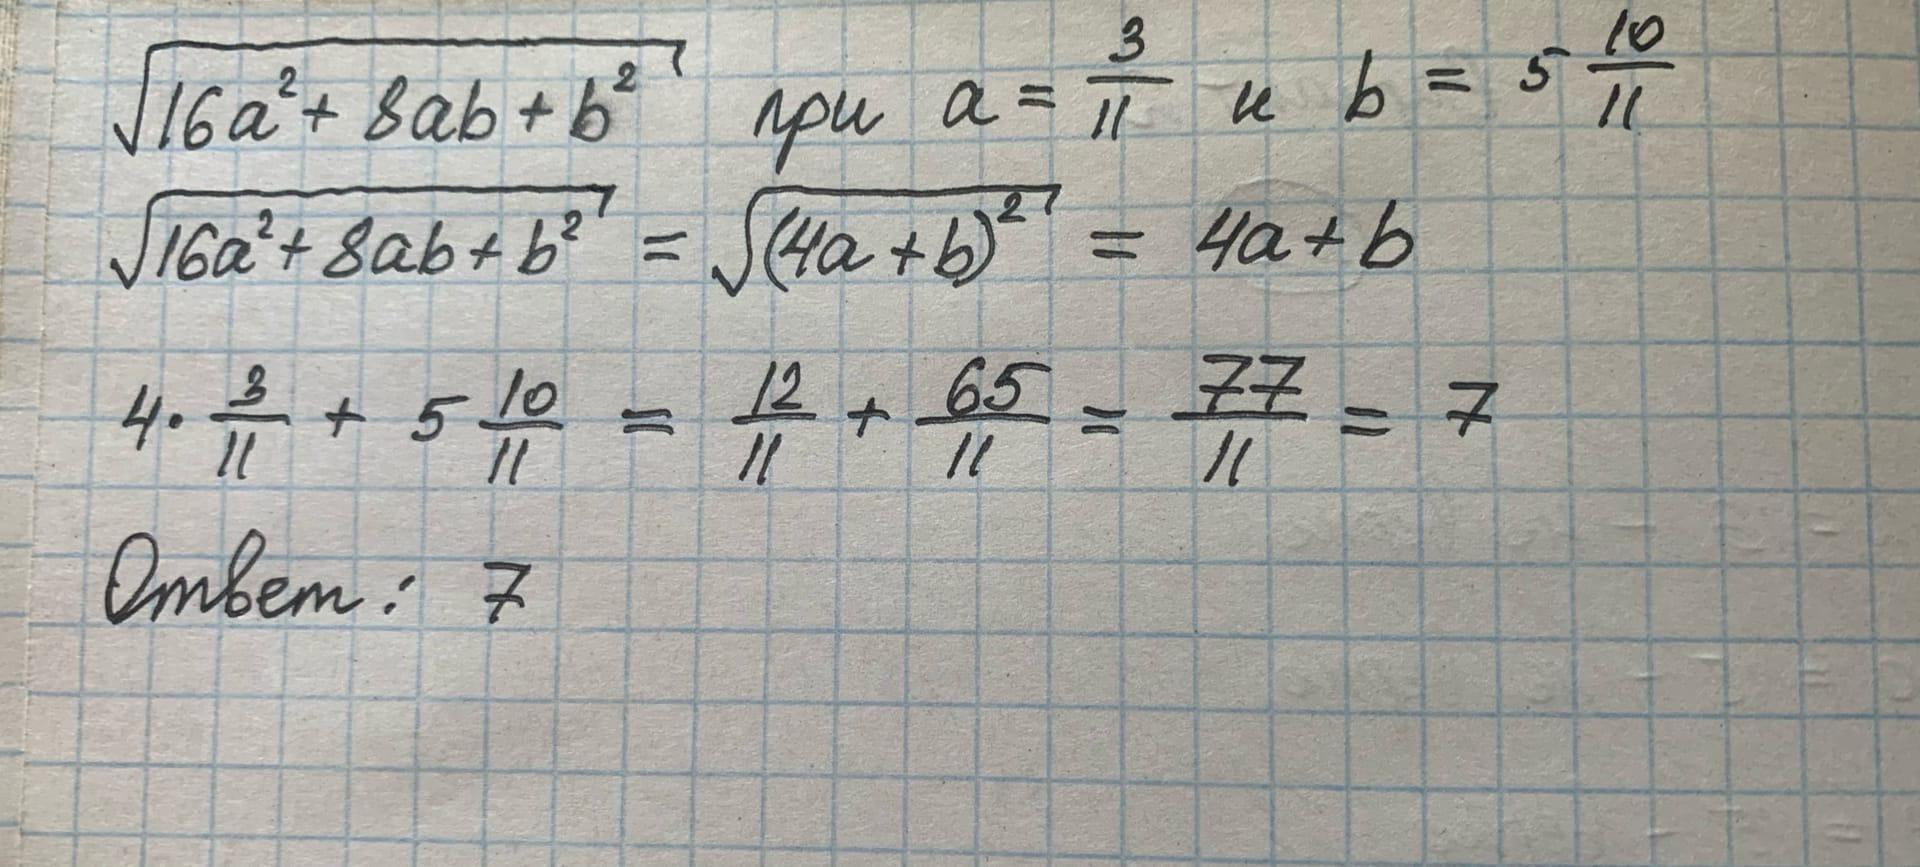 √(16a² + 8ab + b²) при a = 3/11 и b = 5 10/11
√(16a² + 8ab + b²) = √((4a + b)²) = 4a + b
4 · 3/11 + 5 10/11 = 12/11 + 65/11 = 77/11 = 7
Ответ: 7